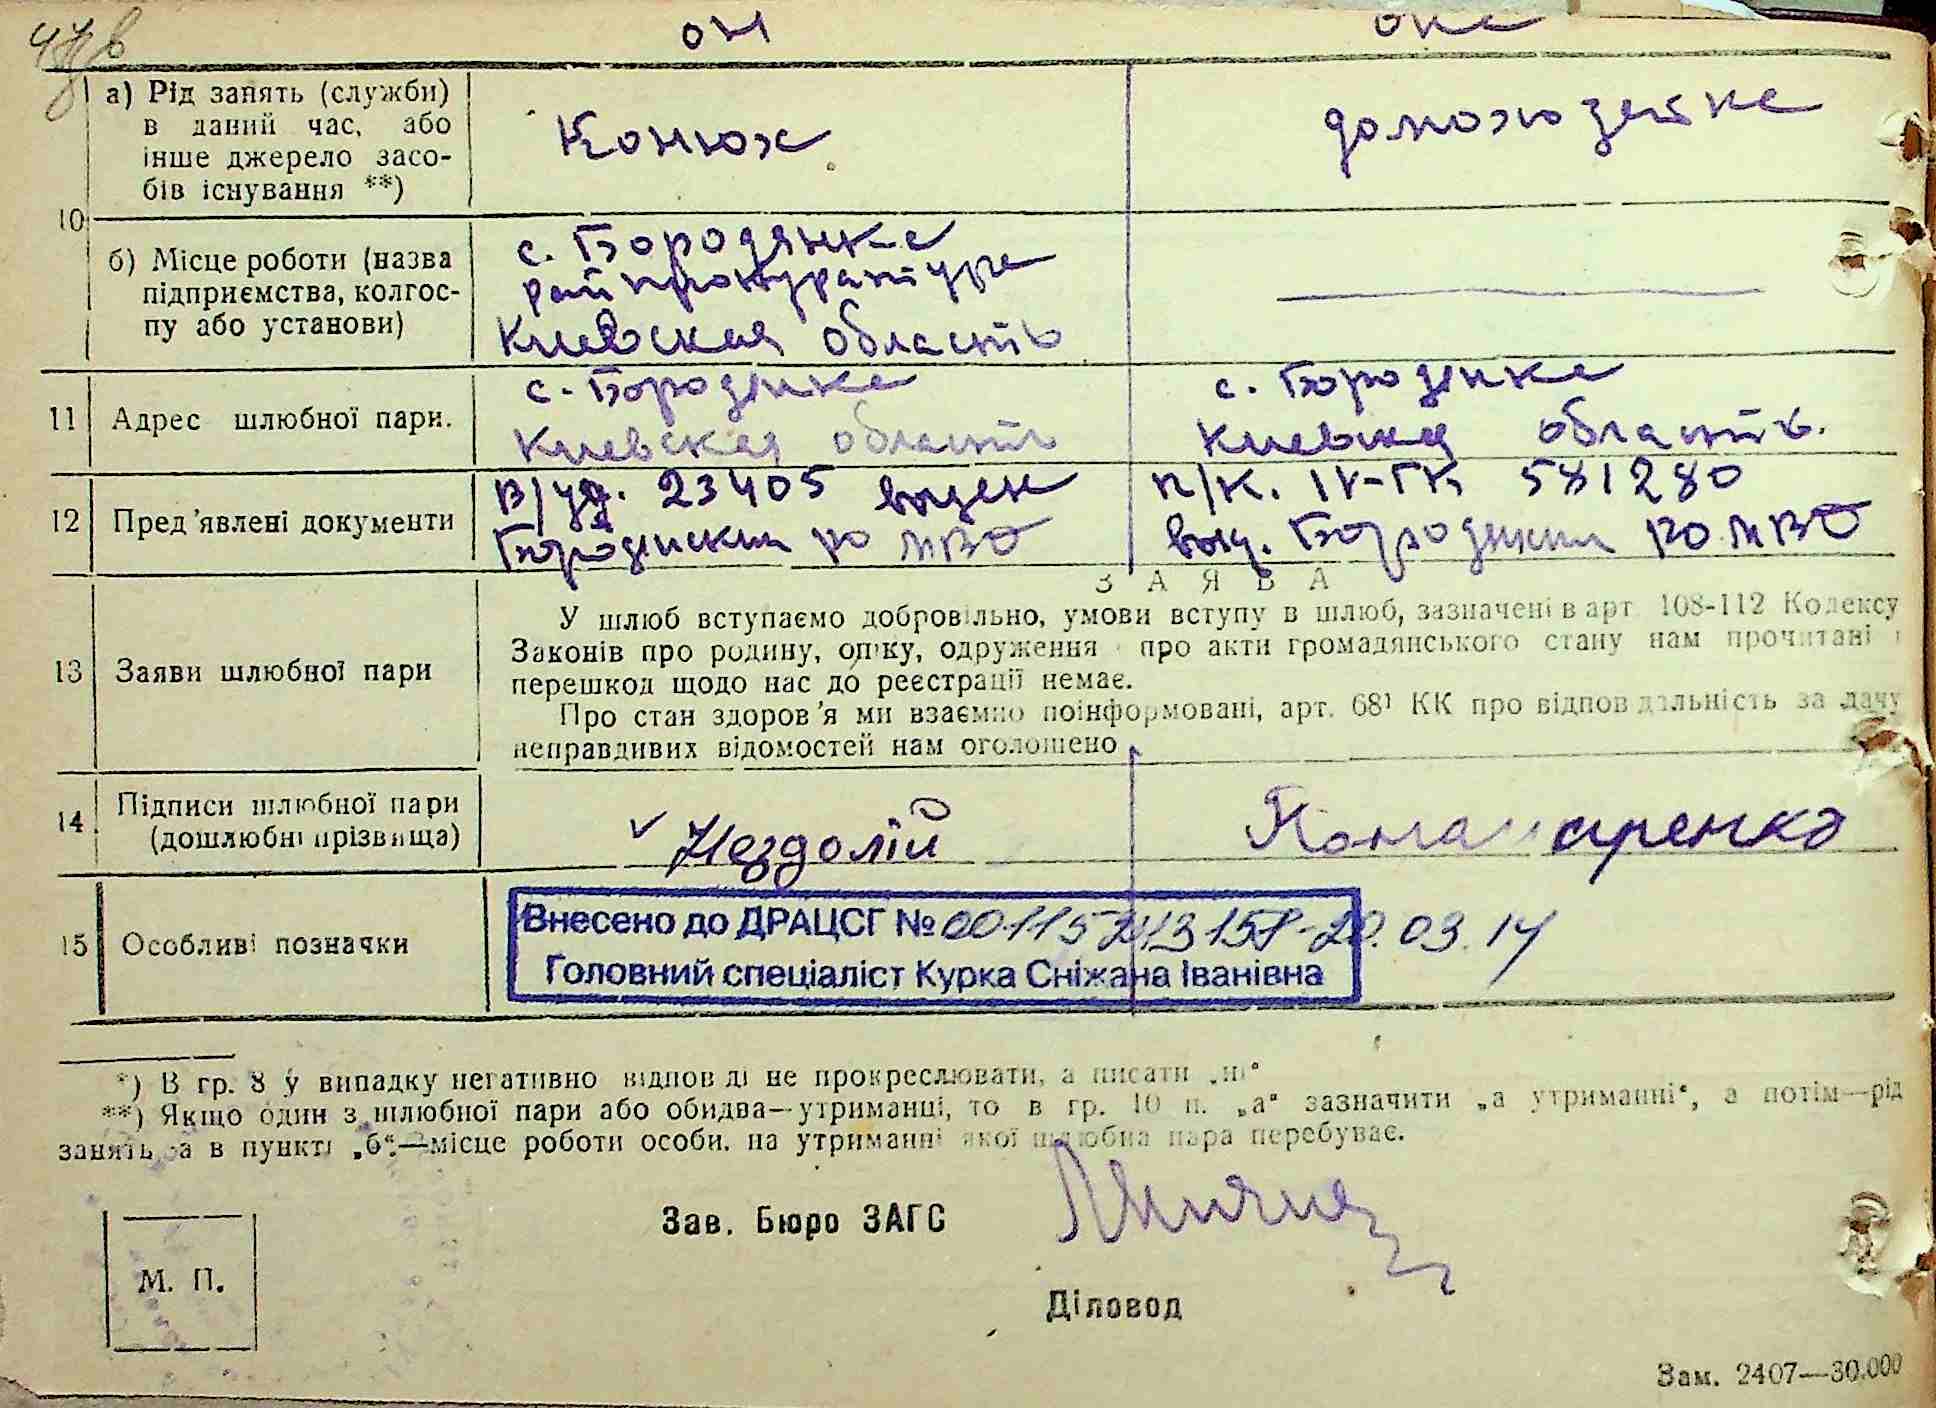 47в
он она
а) Рід занять (служби) в даний час, або інше джерело засо-бів існування **)
Конюх
домохозяйка
10
б) Місце роботи (назва підприємства, колгос-пу або установи)
с. Бородянка
райпрокуратура
Киевская область
11 Адрес шлюбної пари.
с. Бородянка
Киевская область
с. Бородянка
Киевская область.
12 Пред'явлені документи
В/уд. 23405 выдан
Бородянским РО МВД
п/к. IV-ГК 581280
выд. Бородянским РО МВД
ЗАЯВА
13 Заяви шлюбної пари
У шлюб вступаємо добровільно, умови вступу в шлюб, зазначені в арт 108-112 Кодексу
Законів про родину, опіку, одруження і про акти громадянського стану нам прочитані і
перешкод щодо нас до реєстрації немає.
Про стан здоров'я ми взаємно поінформовані, арт. 68¹ КК про відповідальність за дачу
неправдивих відомостей нам оголошено
14 Підписи шлюбної пари (дошлюбні прізвища)
Нездолій
15 Особливі позначки
Внесено до ДРАЦСГ № 00115243157-20.03.14
Головний спеціаліст Курка Сніжана Іванівна
*) В гр. 8 у випадку негативно відповіді не прокреслювати, а писати „ні"
**) Якщо один з шлюбної пари або обидва—утриманці, то в гр. 10 п. „а" зазначити „а утриманні", а потім—рід
занять а в пункті „б"—місце роботи особи, на утриманні якої шлюбна пара перебуває.
Зав. Бюро ЗАГС
М. П.
Діловод
Зам. 2407—30.000